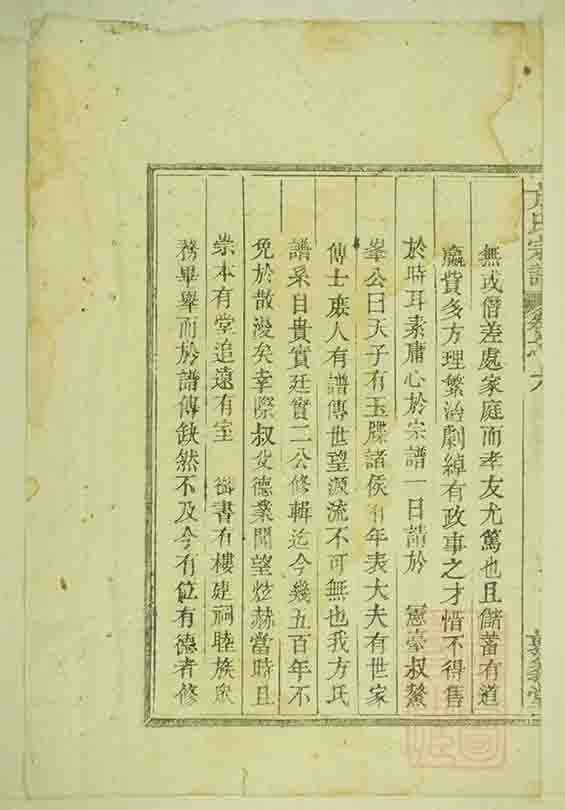 氏宗譜
無或僭差處家庭而孝友尤篤也且儲蓄有道
贏貲多方理繁治劇綽有政事之才惜不得售
於時耳素庸心於宗譜一日請於 憲臺叔鰲
峯公曰天子有玉牒諸侯有年表大夫有世家
傳士庶人有譜傳世望源流不可無也我方氏
譜系自貴實廷實二公修輯迄今幾五百年不
免於散漫矣幸際叔父德業聞望炫赫當時且
崇本有堂追遠有室 御書有樓建祠睦族眾
務畢舉而於譜傳缺然不及今有位有德者修